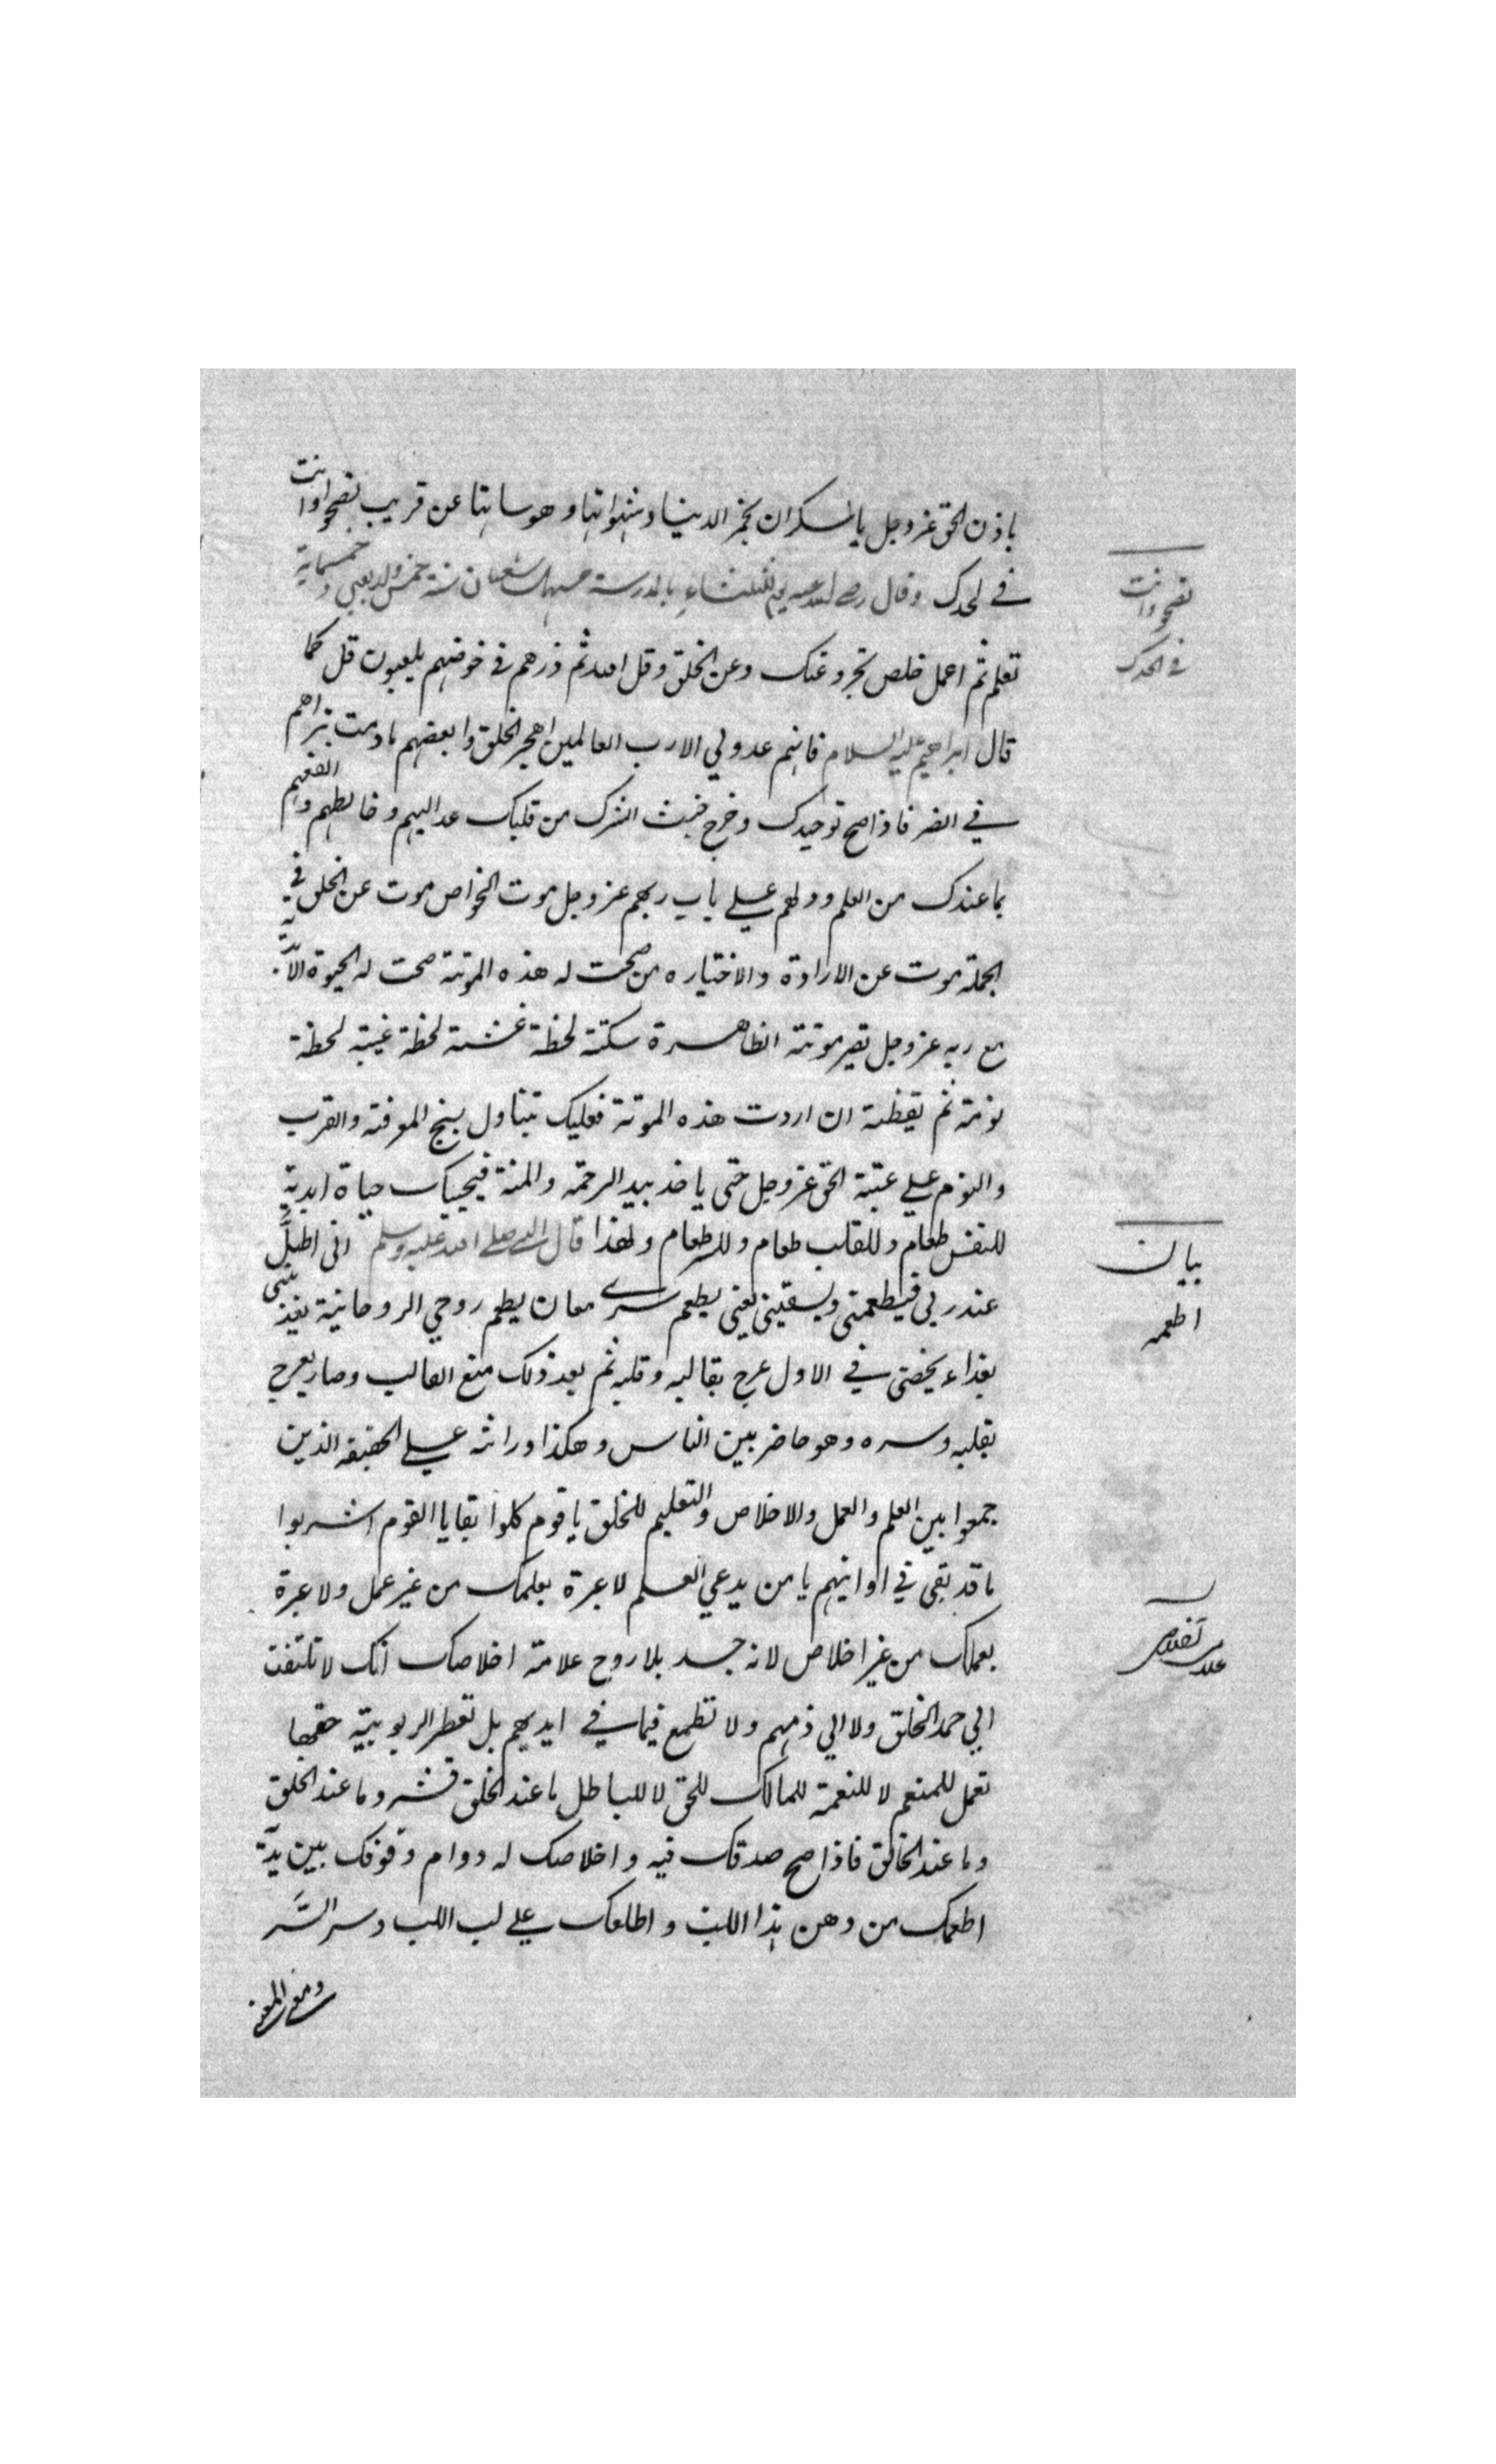 باذن الحق عز وجل يا سكران بخمر الدينا وشهواتها وهوساتها عن قريب تصحوا وانت
في لحدك وقال رضي الله عنه يوم الثلثاء بالمدرسة شعبان سنة خمس واربعين وخمسماية
تعلم ثم اعمل خلص تجرد عنك وعن الخلق وقل الله ثم ذرهم في خوضهم يلعبون قل كما
قال ابراهيم عليه السلام فانهم عدو لي الا رب العالمين اهجر الخلق وابغضهم مادمت تراهم
في الضر فاذا صح توحيدك وخرج خبث الشرك من قلبك عد اليهم وخالطهم وانفعهم
بما عندك من العلم ودلهم علي باب ربهم عز وجل موت الخواص موت عن الخلق في
الجملة موت عن الارادة والاختيار ه من صحت له هذه الموتة صحت له الحيوة الابدية
مع ربه عز وجل تصير موتته الظاهرة سكتة لحظة غشية لحظة غيبته لحظة
نومة ثم يقظة ان اردت هذه الموتة فعليك بتناول بنج المعرفة والقرب
والنوم علي عتبة الحق عز وجل حتى ياخذ بيد الرحمة والمنة فيحييك حياة ابدية
للنفس طعام وللقلب طعام وللسر طعام ولهذا قال النبي صلي الله عليه وسلم اني اظل
عند ربي فيطعمني ويسقيني يعني يطعم سري معان يطعم روحي الروحانية يغذيني
بغذاء يخصني في الاول عرج بقالبه وقلبه ثم بعد ذلك منع القالب وصار يعرج
بقلبه وسره وهو حاضر بين الناس وهكذا وراثه علي الحقيقة الذين
جمعوا بين العلم والعمل والاخلاص والتعليم للخلق يا قوم كلوا بقايا القوم اشربوا
ما قد بقي في اوانيهم يا من يدعي العلم لا عبرة بعلمك من غير عمل ولا عبرة
بعملك من غير اخلاص لانه جسد بلا روح علامة اخلاصك انك لا تلتفت
الي حمد الخلق ولا الي ذمهم ولا تطمع فيما في ايديهم بل تعطي الربوبية حقها
تعمل للمنعم لا للنعمة للمالك للحق لا للباطل ما عند الخلق قشر وما عند الخلق
وما عند الخالق فاذا صح صدقك فيه واخلاصك له دوام وقوفك بين يديه
اطعمك من دهن هذا اللب واطلعك علي لب اللب وسر السر
ومعنى المعنى
تصحوا وانت
في لحدك
بيان
اطعمه